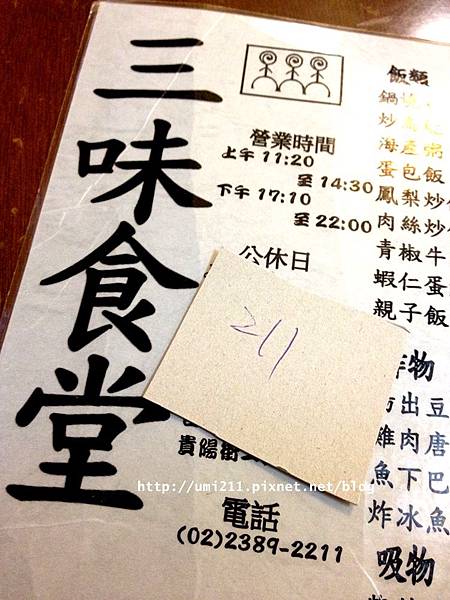 三味食堂
營業時間
上午11:20
至14:30
下午17:10
至22:00
公休日
211
貴陽街
http://umi211.pixnet.net/blog
電話
(02)2389-2211
飯類
鍋燒
炒
海產粥
蛋包飯
鳳梨炒
肉絲炒
青椒牛
蝦仁蛋
親子飯
物
出豆
雞肉唐
魚下巴
炸冰魚
吸物